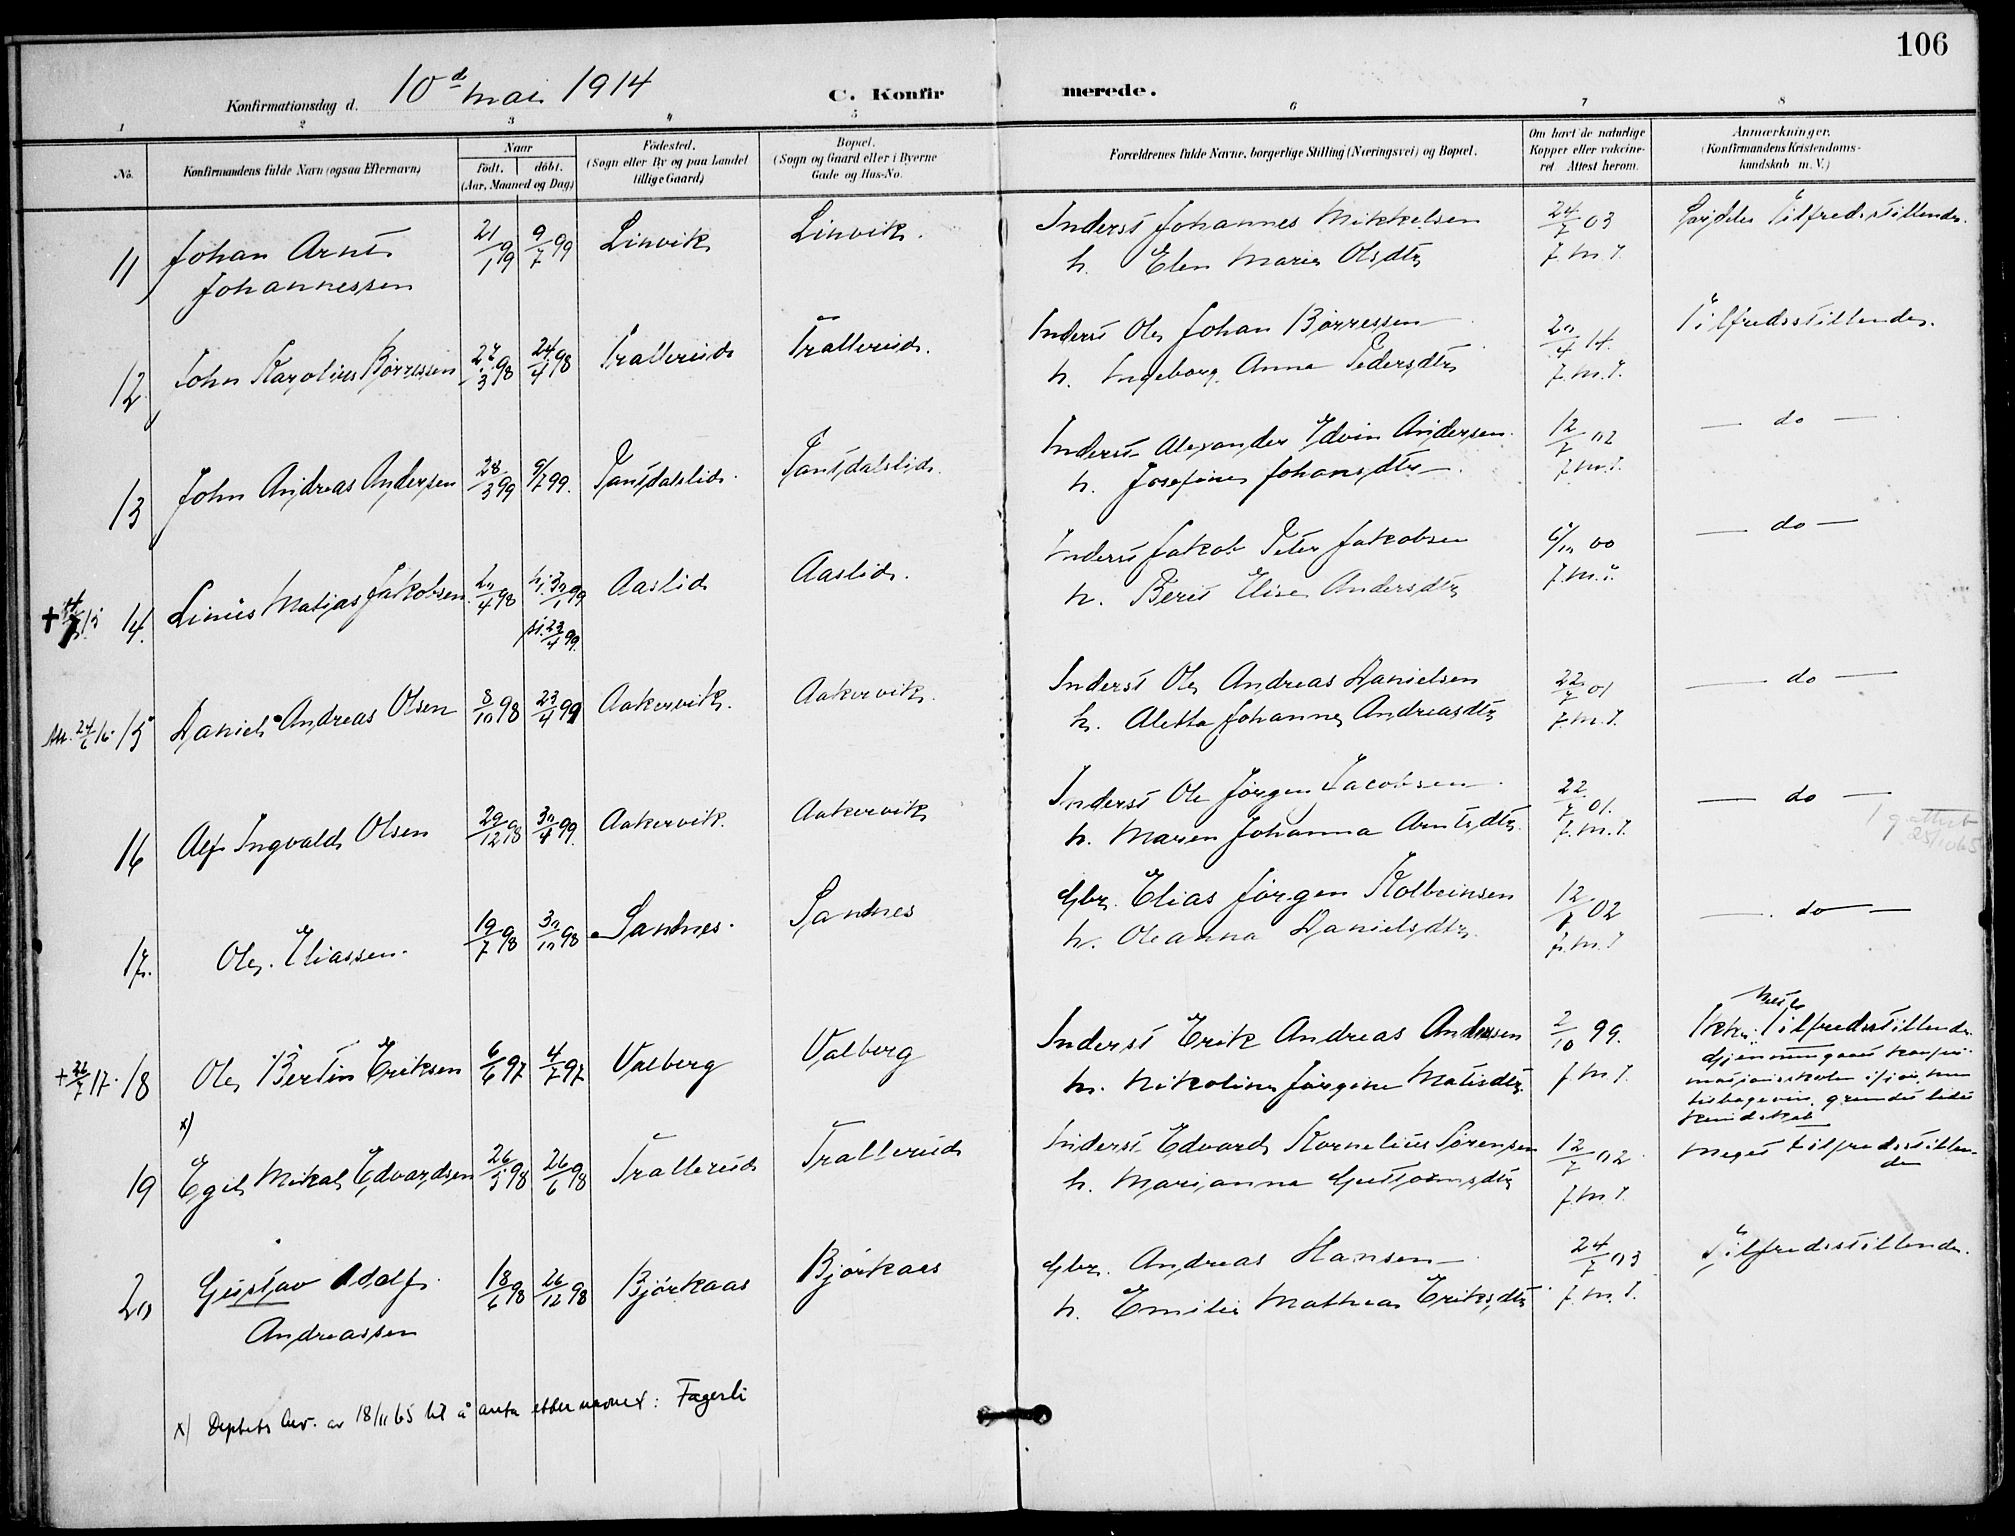 106
Konfirmationsdag d. 10d mai 1914
C. Konfir merede.
1 2 3 4 5 6 7 8
No.
Konfirmandens fulde Navn (ogsaa Efternavn)
Naar
født. døbt.
(Aar, Maaned og Dag)
Fødested.
(Sogn eller By og paa Landet
tillige Gaard)
Bopæl.
(Sogn og Gaard eller i Byerne
Gade og Hus-No.
Forældrenes fulde Navne, borgerlige Stilling (Næringsvei) og Bopæl.
Om havt de naturlige
Kopper eller vakcine-
ret. Attest herom.
Anmærkninger.
(Konfirmandens Kristendoms-
kundskab m. V.)
11 Johan Arnt 21/1 99 9/7 99 Linvik Linvik. Inderst Johannes Mikkelsen 24/7 03 Tilfredsstillende.
Johannessen h. Elen Marie Olsdtr
12 John Karolius Børressen 27/3 98 24/4 98 Trallerud Trallerud. Inderst Ole Johan Børressen 20/4 14. Tilfredsstillende.
h. Ingeborg Anna Pedersdtr
13 John Andreas Andersen 28/3 99 9/7 99. Inderst Alexander Edvin Andersen 12/7 02 — do —
h. Josefine Johansdtr
14. Linus Matias Jakobsen 20/4 98 hj. 30/1 99 Aaslid Aaslid. Inderst Jakob Peter Jakobsen 6/10 00 — do —
st. 23/4 99. h. Berit Elise Andersdtr
15 Daniel Andreas Olsen 8/10 98 23/4 99 Aakervik. Aakervik. Inderst Ole Andreas Danielsen 22/7 01 — do —
h. Aletta Johanne Andreasdtr
16 Alf Ingvald Olsen 29/12 98 30/4 99. Aakervik. Aakervik Inderst Ole Jørgen Jacobsen 22/7 01. — do —
h. Maren Johanna Arntsdtr.
17. Ole Eliassen. 19/7 98 30/10 98 Sandnes. Sandnes Gbr. Elias Jørgen Kolbeinsen 12/7 02 — do —
h. Oleanna Danielsdtr.
+ 26/7 17. 18 Ole Bertin Eriksen 6/6 97 4/7 97 Valberg Valberg Inderst Erik Andreas Andersen 2/10 99. Ikke Tilfredsstillende
h. Nikoline Jørgine Matisdtr.
kundskab
x)
19 Egil Mikal Edvardsen 26/5 98 26/6 98 Trallerud Trallerud Inderst Edvard Kornelius Sørensen 12/7 02 Meget tilfredsstillen-
de
h. Marianna Guttormsdtr
20 Gustav Adolf 18/6 98 26/12 98 Bjørkaas Bjørkaas Gbr. Andreas Hansen 24/7 03 Tilfredsstillende.
Andreassen h. Emilie Mathea Eriksdtr
x) Deptets bev. av 18/11 65 til å anta etternavnet: Fagerli